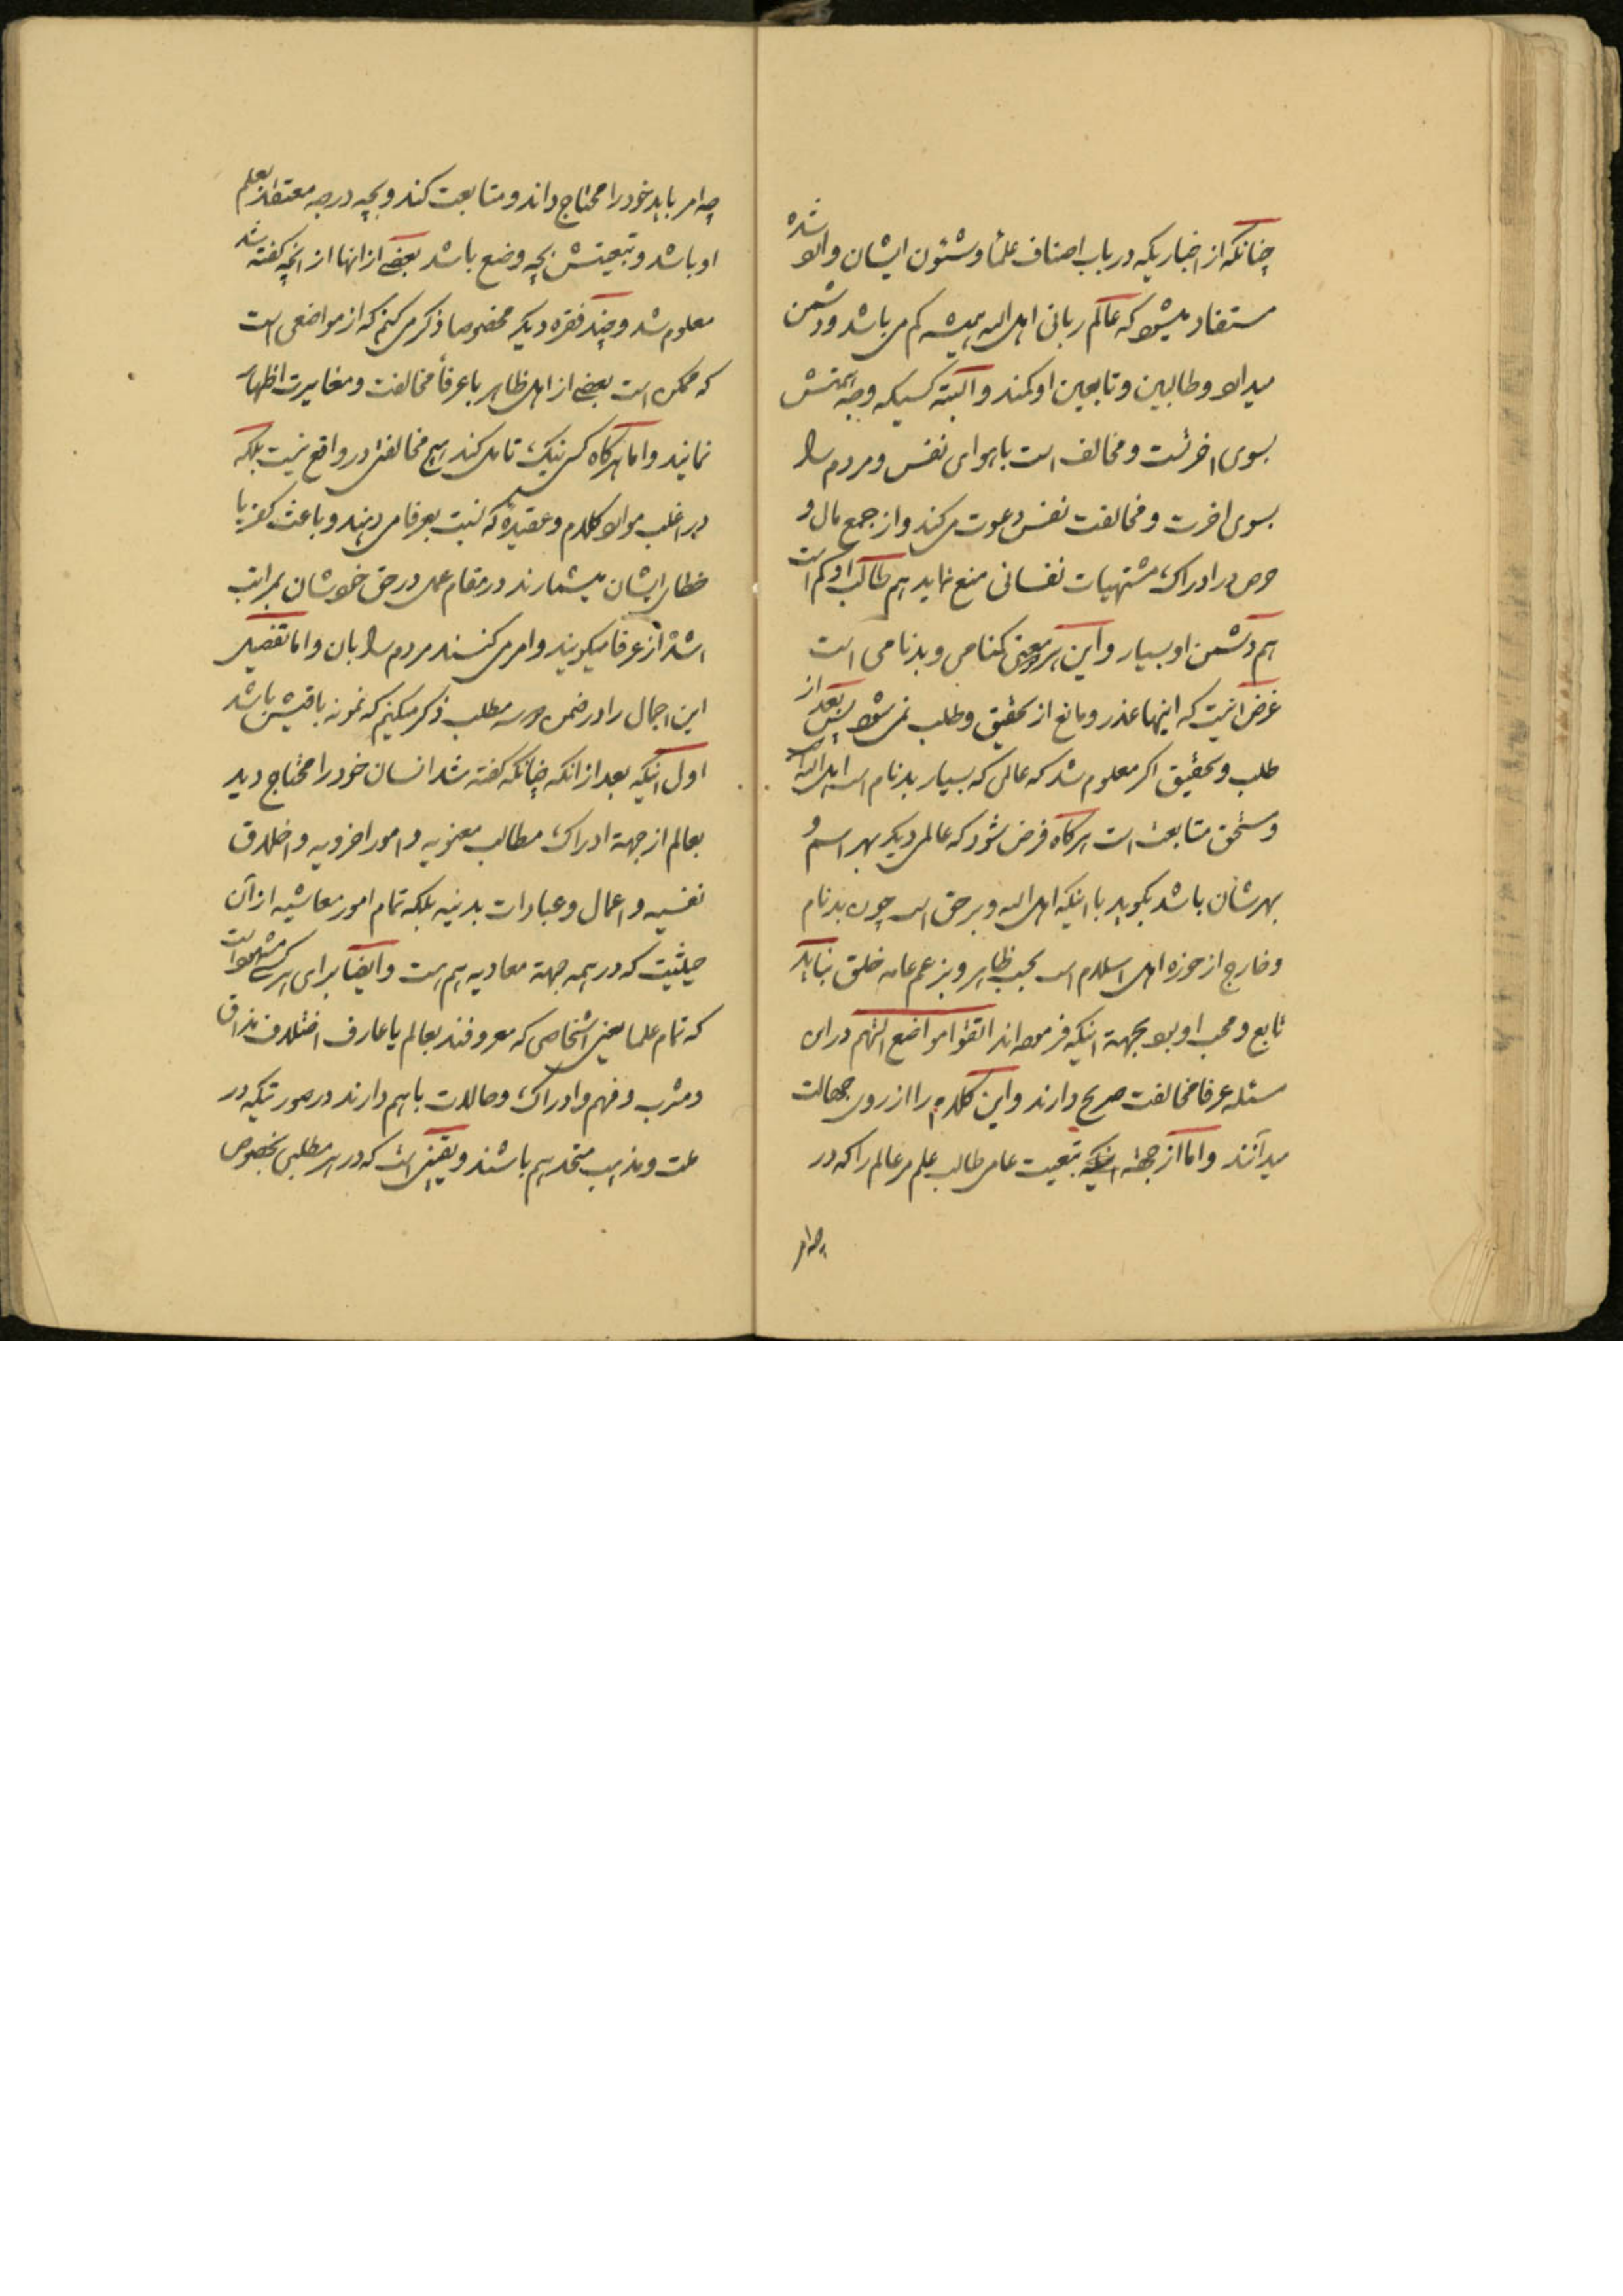 چنانکه از اخباریکه در باب اصناف علما و شئون ایشان وارد شده
مستفاد میشود که عالم ربانی اهل الله همیشه کم می باشد و دشمن
میدارد و طالبین و تابعین او کمند و البته کسیکه وجه همتش
بسوی اخرتست و مخالف است با هوای نفس و مردم را
بسوی اخرت و مخالفت نفس دعوت می کند و از جمع مال و
حرص در ادراک مشتهیات نفسانی منع نماید هم طالب او کم است
هم دشمن او بسیار و این هر دو معنی گمنامی و بدنامی است
غرض انیست که اینها عذر و مانع از تحقیق و طلب نمی شود پس بعد از
طلب و تحقیق اکر معلوم شد که عالمی که بسیار بدنام است اهل الله است
و مستحق متابعت است هرکاه فرض شود که عالمی دیکر بهر اسم و
بهر شان باشد بکوید با اینکه اهل الله و بر حق است چون بدنام
و خارج از حوزه اهل اسلام است بحسب ظاهر و بزعم عامه خلق نباید
تابع و محب او بود بجهة اینکه فرموده اند اتقوا مواضع التهم در این
مسئله عرفا مخالفت صریح دارند و این کلام را از روی جهالت
میدانند و اما از جهة اینکه تبعیت عامی طالب علم مر عالم را که در
چه امر
چه امر باید خود را محتاج داند و متابعت کند و بچه درجه معتقد بعلم
او باشد و تبعیتش بچه وضع باشد بعضی از انها از انچه کفته شد
معلوم شد و چند فقره دیکر مخصوصا ذکر می کنم که از مواضعی است
که ممکن است بعضی از اهل ظاهر با عرفا مخالفت و مغایرت اظهار
نمایند و اما هرکاه کسی نیک تامل کند هیچ مخالفتی در واقع نیست بلکه
در اغلب موارد کلام و عقیدهٔ که نسبت بعرفا می دهند و باعث کفر یا
خطای ایشان میشمارند در مقام عمل در حق خودشان بمراتب
اشد از عرفا میکویند و امر می کنند مردم را بان و اما تفصیل
این اجمال را در ضمن دو سه مطلب ذکر میکنم که نمونه باقیش باشد
اول اینکه بعد از انکه چنانکه کفته شد انسان خود را محتاج دید
بعالم از جهة ادراک مطالب معنویه و امور اخرویه و اخلاق
نفسیه و اعمال و عبادات بدنیه بلکه تمام امور معاشیه از آن
حیثیت که در همه جهة معادیه هم هست و ایضا برای هر کسی مشهود است
که تمام علما یعنی اشخاصی که معروفند بعالم یا عارف اختلاف مذاق
و مشرب و فهم و ادراک و حالات با هم دارند در صورتیکه در
ملت و مذهب متحد هم باشند و یقینی است که در هر مطلبی بخصوص